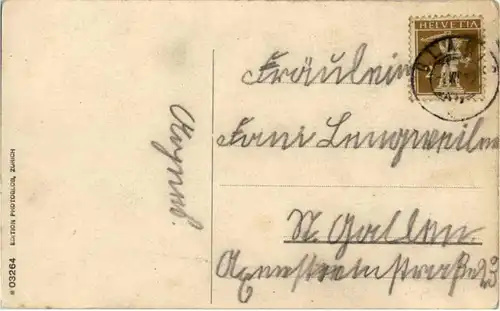 HELVETIA
Fräulein
Fani Lengweiler
St. Gallen.
EDITION PHOTOGLOB, ZÜRICH
# 03264